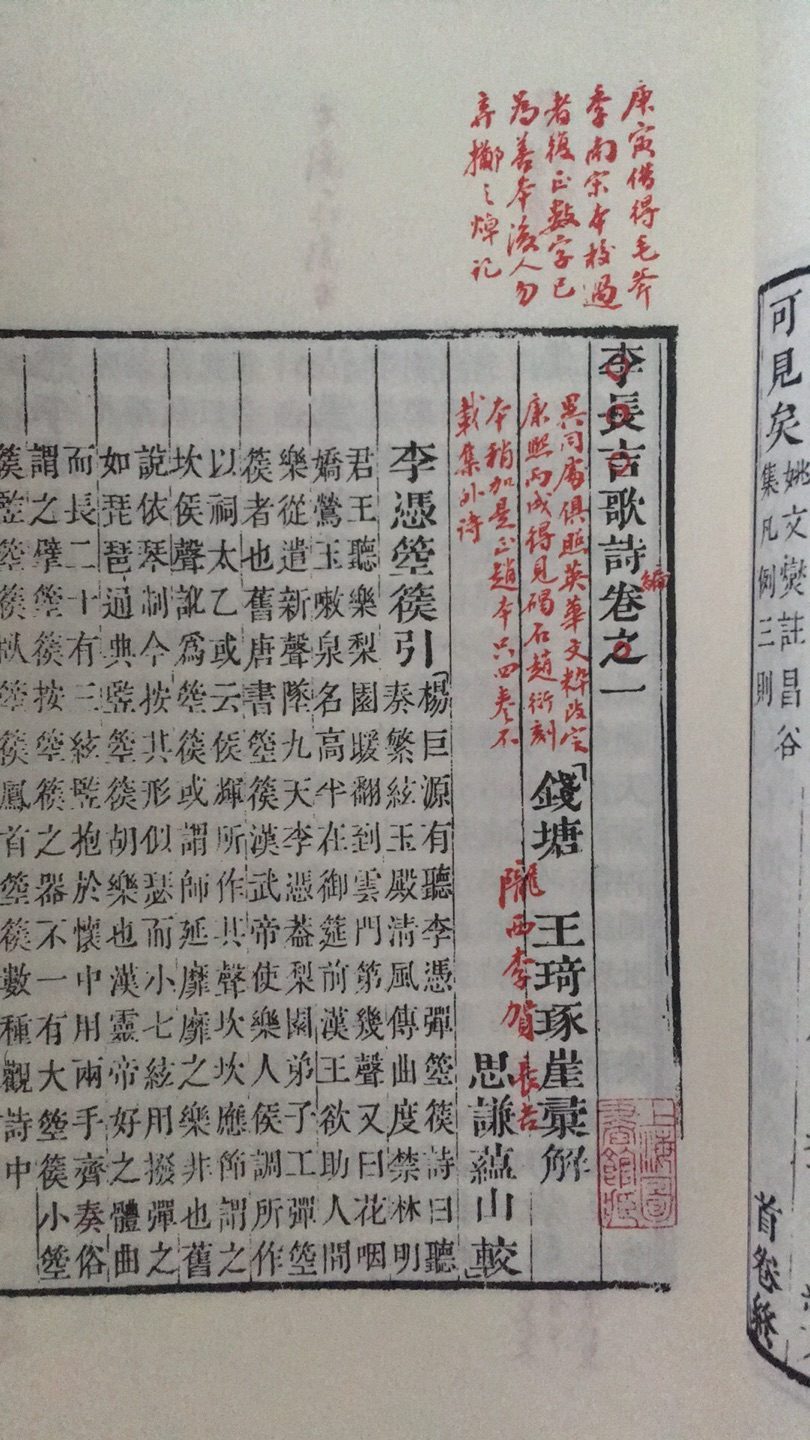 可見矣
姚文燮註昌谷
集凡例三則
首卷終
庚寅借得毛斧
季南宋本校過
者復正數字已
為善本後人勿
弃擲之焯記
李長吉歌詩卷之一
編
異同處俱照英華文粹改定
康熙丙戌得見碣石趙衍刻
本稍加是正趙本只四卷不
載集外詩
錢塘 王琦琢崖彙解
隴西李賀長吉
思謙蘊山較
李憑箜篌引
楊巨源有聽李憑彈箜篌詩曰聽
奏繁絃玉殿清風傳曲度禁林明
君王聽樂梨園暖翻到雲門第幾聲又曰花咽
嬌鶯玉嗽泉名高半在御筵前漢王欲助人間
樂從遣新聲墜九天李憑葢梨園弟子工彈箜
篌者也舊唐書箜篌漢武帝使樂人侯調所作
以祠太乙或云侯輝所作其聲坎坎應節謂之
坎侯聲訛為箜篌或謂師延靡靡之樂非也舊
說依琴制今按其形似瑟而小七絃用撥彈之
如琵琶通典豎箜篌胡樂也漢靈帝好之體曲
而長二十有三絃豎抱於懷中用兩手齊奏俗
謂之擘箜篌按箜篌之器不一有大箜篌小箜
篌豎箜篌臥箜篌鳳首箜篌數種觀詩中
上海圖
書館藏